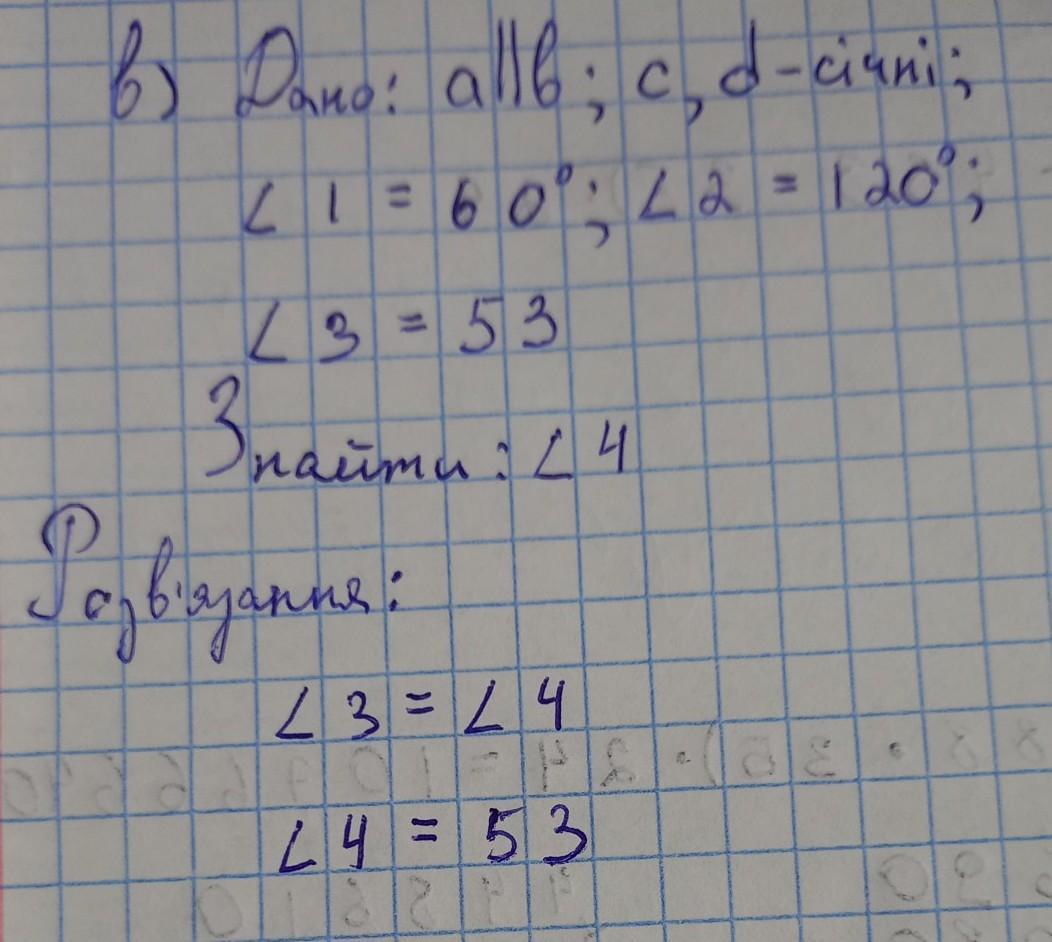 в) Дано: a||b; c, d - січні;
∠1 = 60°; ∠2 = 120°;
∠3 = 53
Знайти: ∠4
Розв'язання:
∠3 = ∠4
∠4 = 53